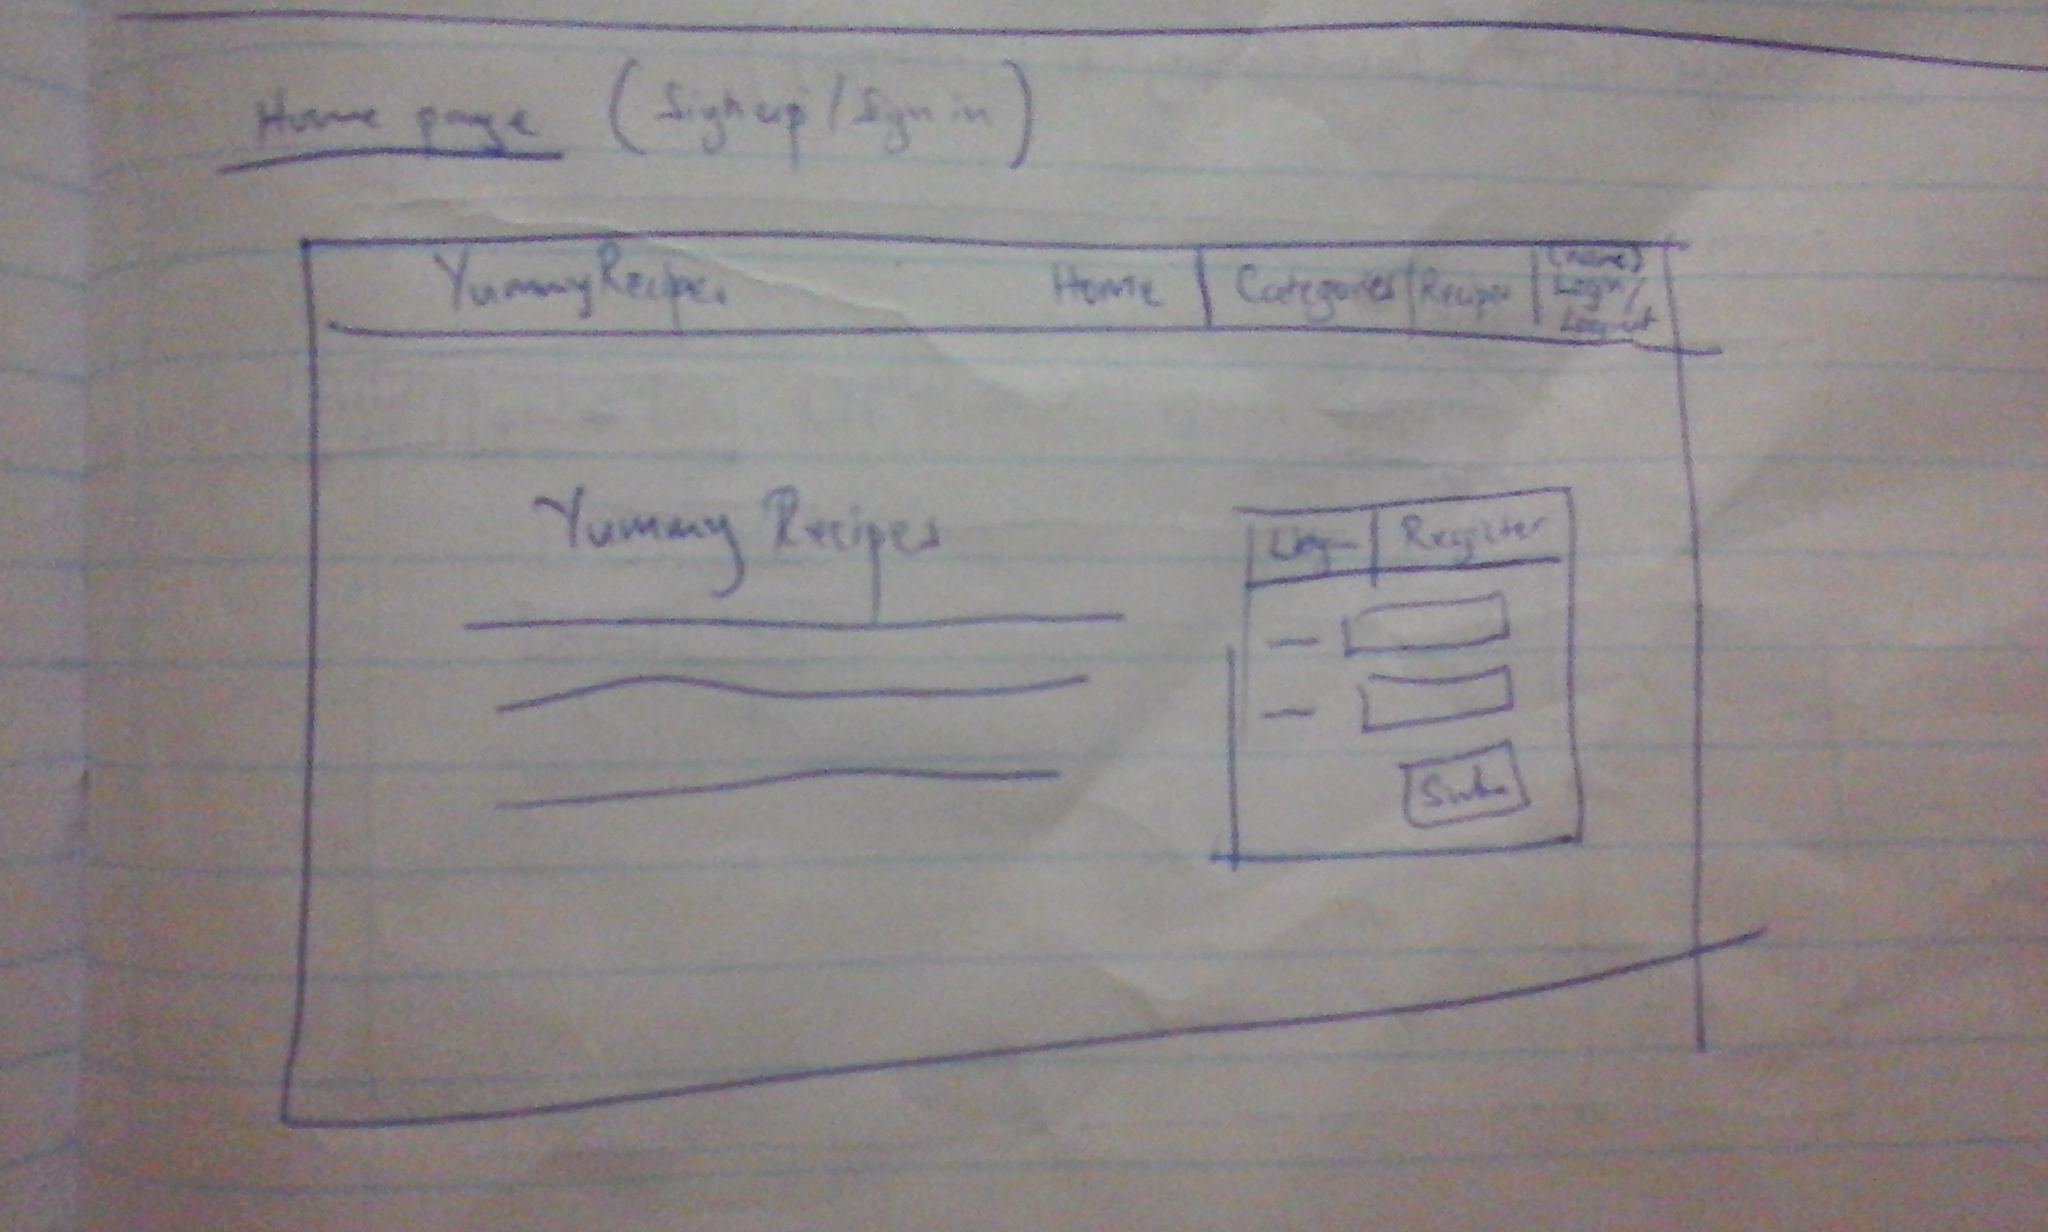 Home page (Sign up / Sign in)
YummyRecipes Home Categories Recipes (name) Login/ Logout
Yummy Recipes
Login Register